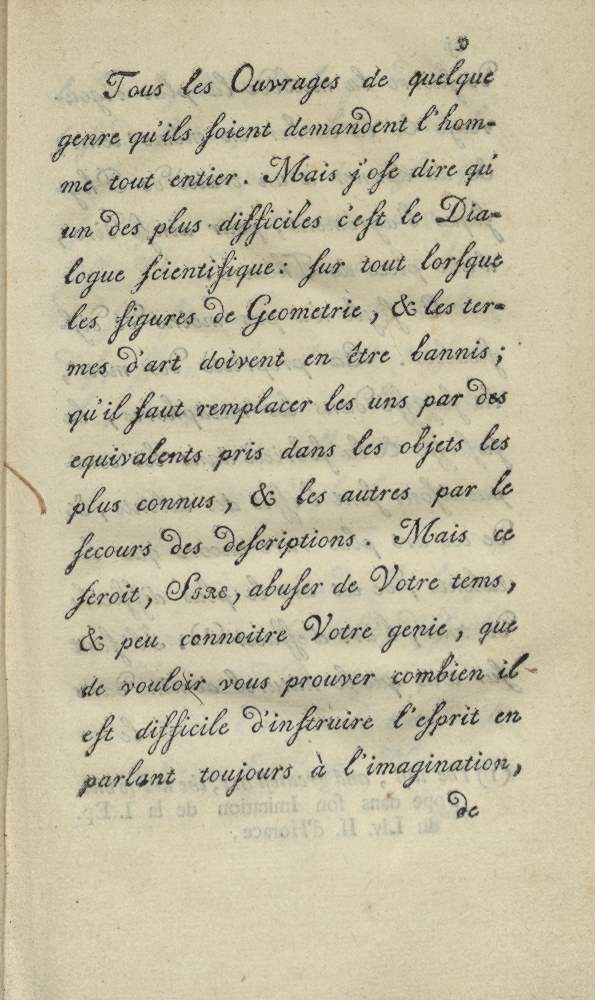 Tous les Ouvrages de quelque
genre qu'ils ſoient demandent l'hom-
me tout entier. Mais j'oſe dire qu'
un des plus difficiles c'eſt le Dia-
logue ſcientifique: ſur tout lorſque
les figures de Geometrie, & les ter-
mes d'art doivent en être bannis;
qu'il faut remplacer les uns par des
equivalents pris dans les objets les
plus connus, & les autres par le
ſecours des deſcriptions. Mais ce
ſeroit, SIRE, abuſer de Votre tems,
& peu connoitre Votre genie, que
de vouloir vous prouver combien il
eſt difficile d'inſtruire l'eſprit en
parlant toujours à l'imagination,
de